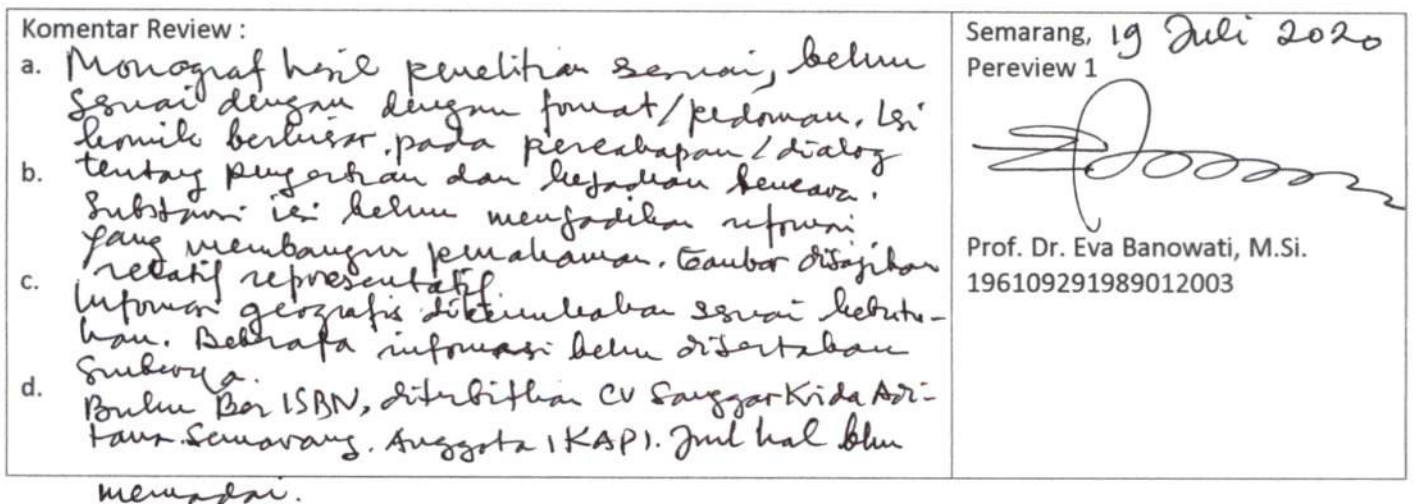 Komentar Review :
a. Monograf hasil penelitian sesuai, belum
sesuai dengan dengan format/pedoman. Isi
komik berkisar pada percakapan/dialog
b. tentang pengertian dan kejadian bencana.
Substansi isi belum menjadikan informasi
yang membangun pemahaman. Gambar disajikan
relatif representatif
c. Informasi geografis dikemukakan sesuai kebutu-
han. Beberapa informasi belum disertakan
Sumbernya.
d. Buku Ber ISBN, diterbitkan CV Sanggar Krida Adi-
tama Semarang. Anggota IKAPI. Juml hal blm
memadai.
Semarang, 19 Juli 2020
Pereview 1
Prof. Dr. Eva Banowati, M.Si.
196109291989012003